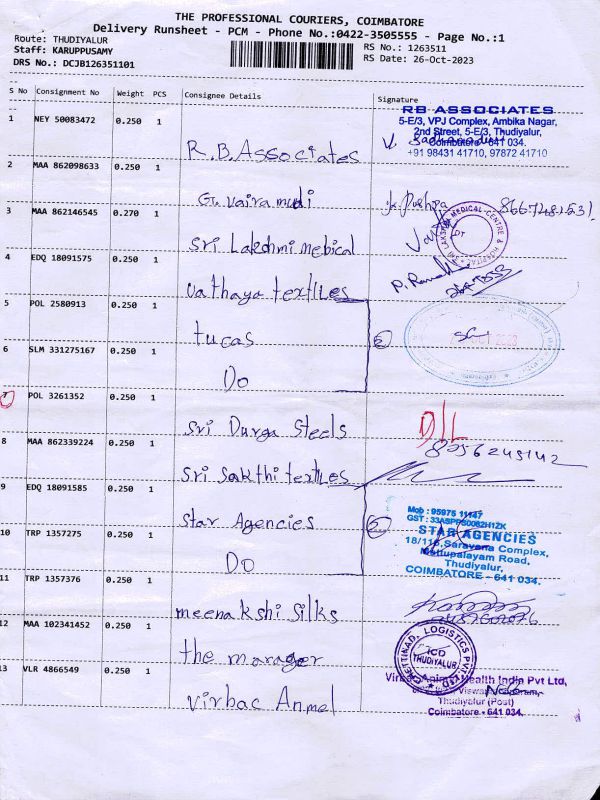 THE PROFESSIONAL COURIERS, COIMBATORE
Delivery Runsheet - PCM - Phone No.:0422-3505555 - Page No.:1
Route: THUDIYALUR
Staff: KARUPPUSAMY
DRS No.: DCJB126351101
RS No.: 1263511
RS Date: 26-Oct-2023
S No Consignment No Weight PCS Consignee Details Signature
1 NEY 50083472 0.250 1 R.B.Associates
RB ASSOCIATES
5-E/3, VPJ Complex, Ambika Nagar,
2nd Street, 5-E/3, Thudiyalur,
Coimbatore - 641 034.
+91 98431 41710, 97872 41710
2 MAA 862098633 0.250 1 G. Vairamudi
Pushpa
3 MAA 862146545 0.270 1 Sri Lakshmi medical
SRI LAKSHMI MEDICAL CENTRE & HOSPITAL
4 EDQ 18091575 0.250 1 Vathaya textiles
5 POL 2580913 0.250 1 tucas
6 SLM 331275167 0.250 1 Do
2
7 POL 3261352 0.250 1 Sri Durga Steels
D/L
8 MAA 862339224 0.250 1 Sri Sakthi textiles
9 EDQ 18091585 0.250 1 Star Agencies
10 TRP 1357275 0.250 1 Do
2
Mob : 95975 11147
STAR AGENCIES
18/116, Saravana Complex,
Mettupalayam Road,
Thudiyalur,
COIMBATORE - 641 034.
11 TRP 1357376 0.250 1 meenakshi silks
12 MAA 102341452 0.250 1 the manager
CHETTINAD LOGISTICS PVT LTD
THUDIYALUR
13 VLR 4866549 0.250 1 Virbac Anmel
Virbac Animal Health India Pvt Ltd,
Thudiyalur (Post)
Coimbatore - 641 034.